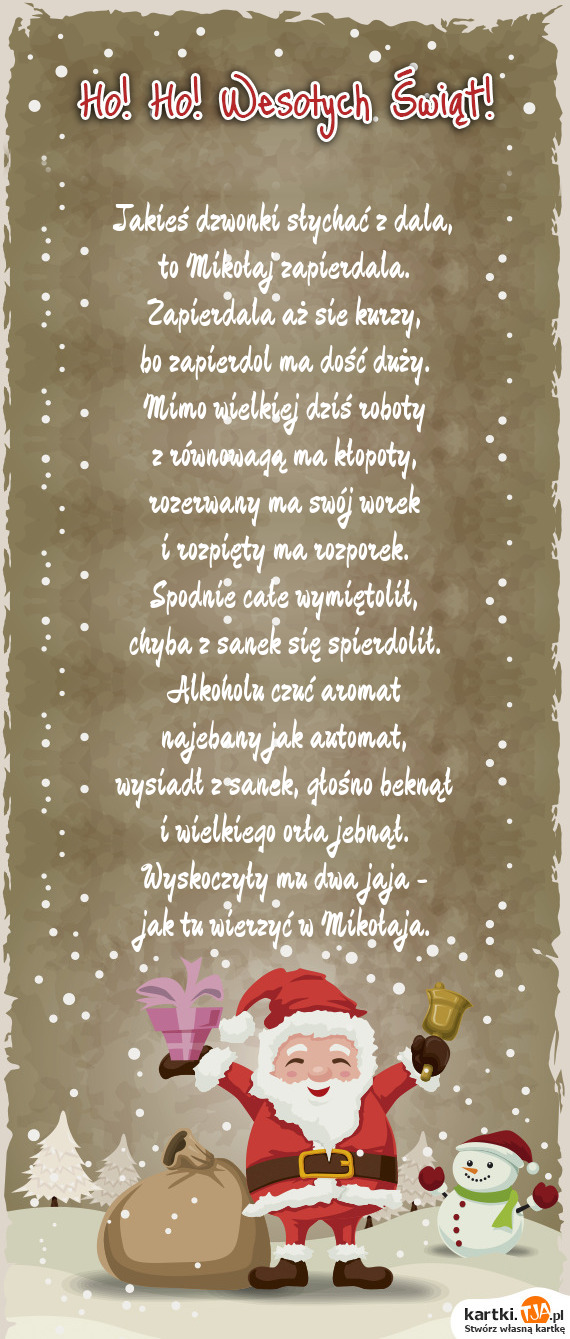 Ho! Ho! Wesołych Świąt!
Jakieś dzwonki słychać z dala,
to Mikołaj zapierdala.
Zapierdala aż sie kurzy,
bo zapierdol ma dość duży.
Mimo wielkiej dziś roboty
z równowagą ma kłopoty,
rozerwany ma swój worek
i rozpięty ma rozporek.
Spodnie całe wymiętolił,
chyba z sanek się spierdolił.
Alkoholu czuć aromat
najebany jak automat,
wysiadł z sanek, głośno beknął
i wielkiego orła jebnął.
Wyskoczyły mu dwa jaja -
jak tu wierzyć w Mikołaja.
kartki.TJA.pl
Stwórz własną kartkę